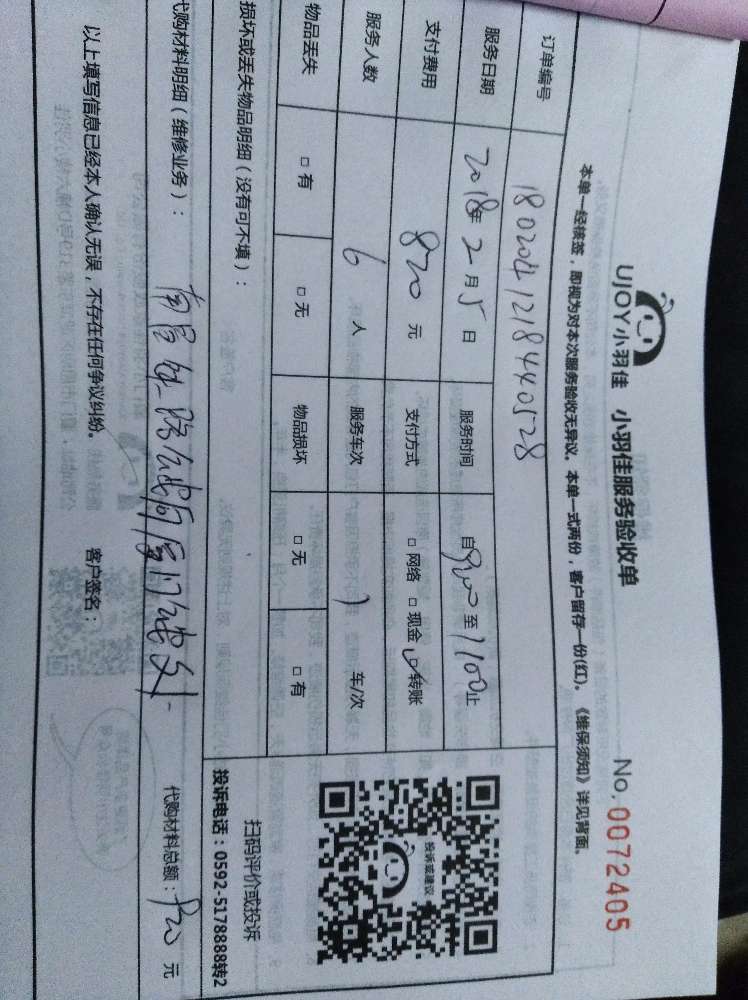 UJOY小羽佳 小羽佳服务验收单
No. 0072405
本单一经核签，即视为对本次服务验收无异议。本单一式两份，客户留存一份(红)。《维保须知》详见背面。
订单编号 1802041218440528
服务日期 2018年2月5日 服务时间 自900至1100止
支付费用 820元 支付方式 □网络 □现金 ☑转账
服务人数 6人 服务车次 1 车/次
物品丢失 □有 □无 物品损坏 □无 □有
投诉或建议
扫码评价或投诉
投诉电话：0592-5178888转2
损坏或丢失物品明细（没有可不填）：
代购材料明细（维修业务）：
代购材料总额： 元
以上填写信息已经本人确认无误，不存在任何争议纠纷。 客户签名：